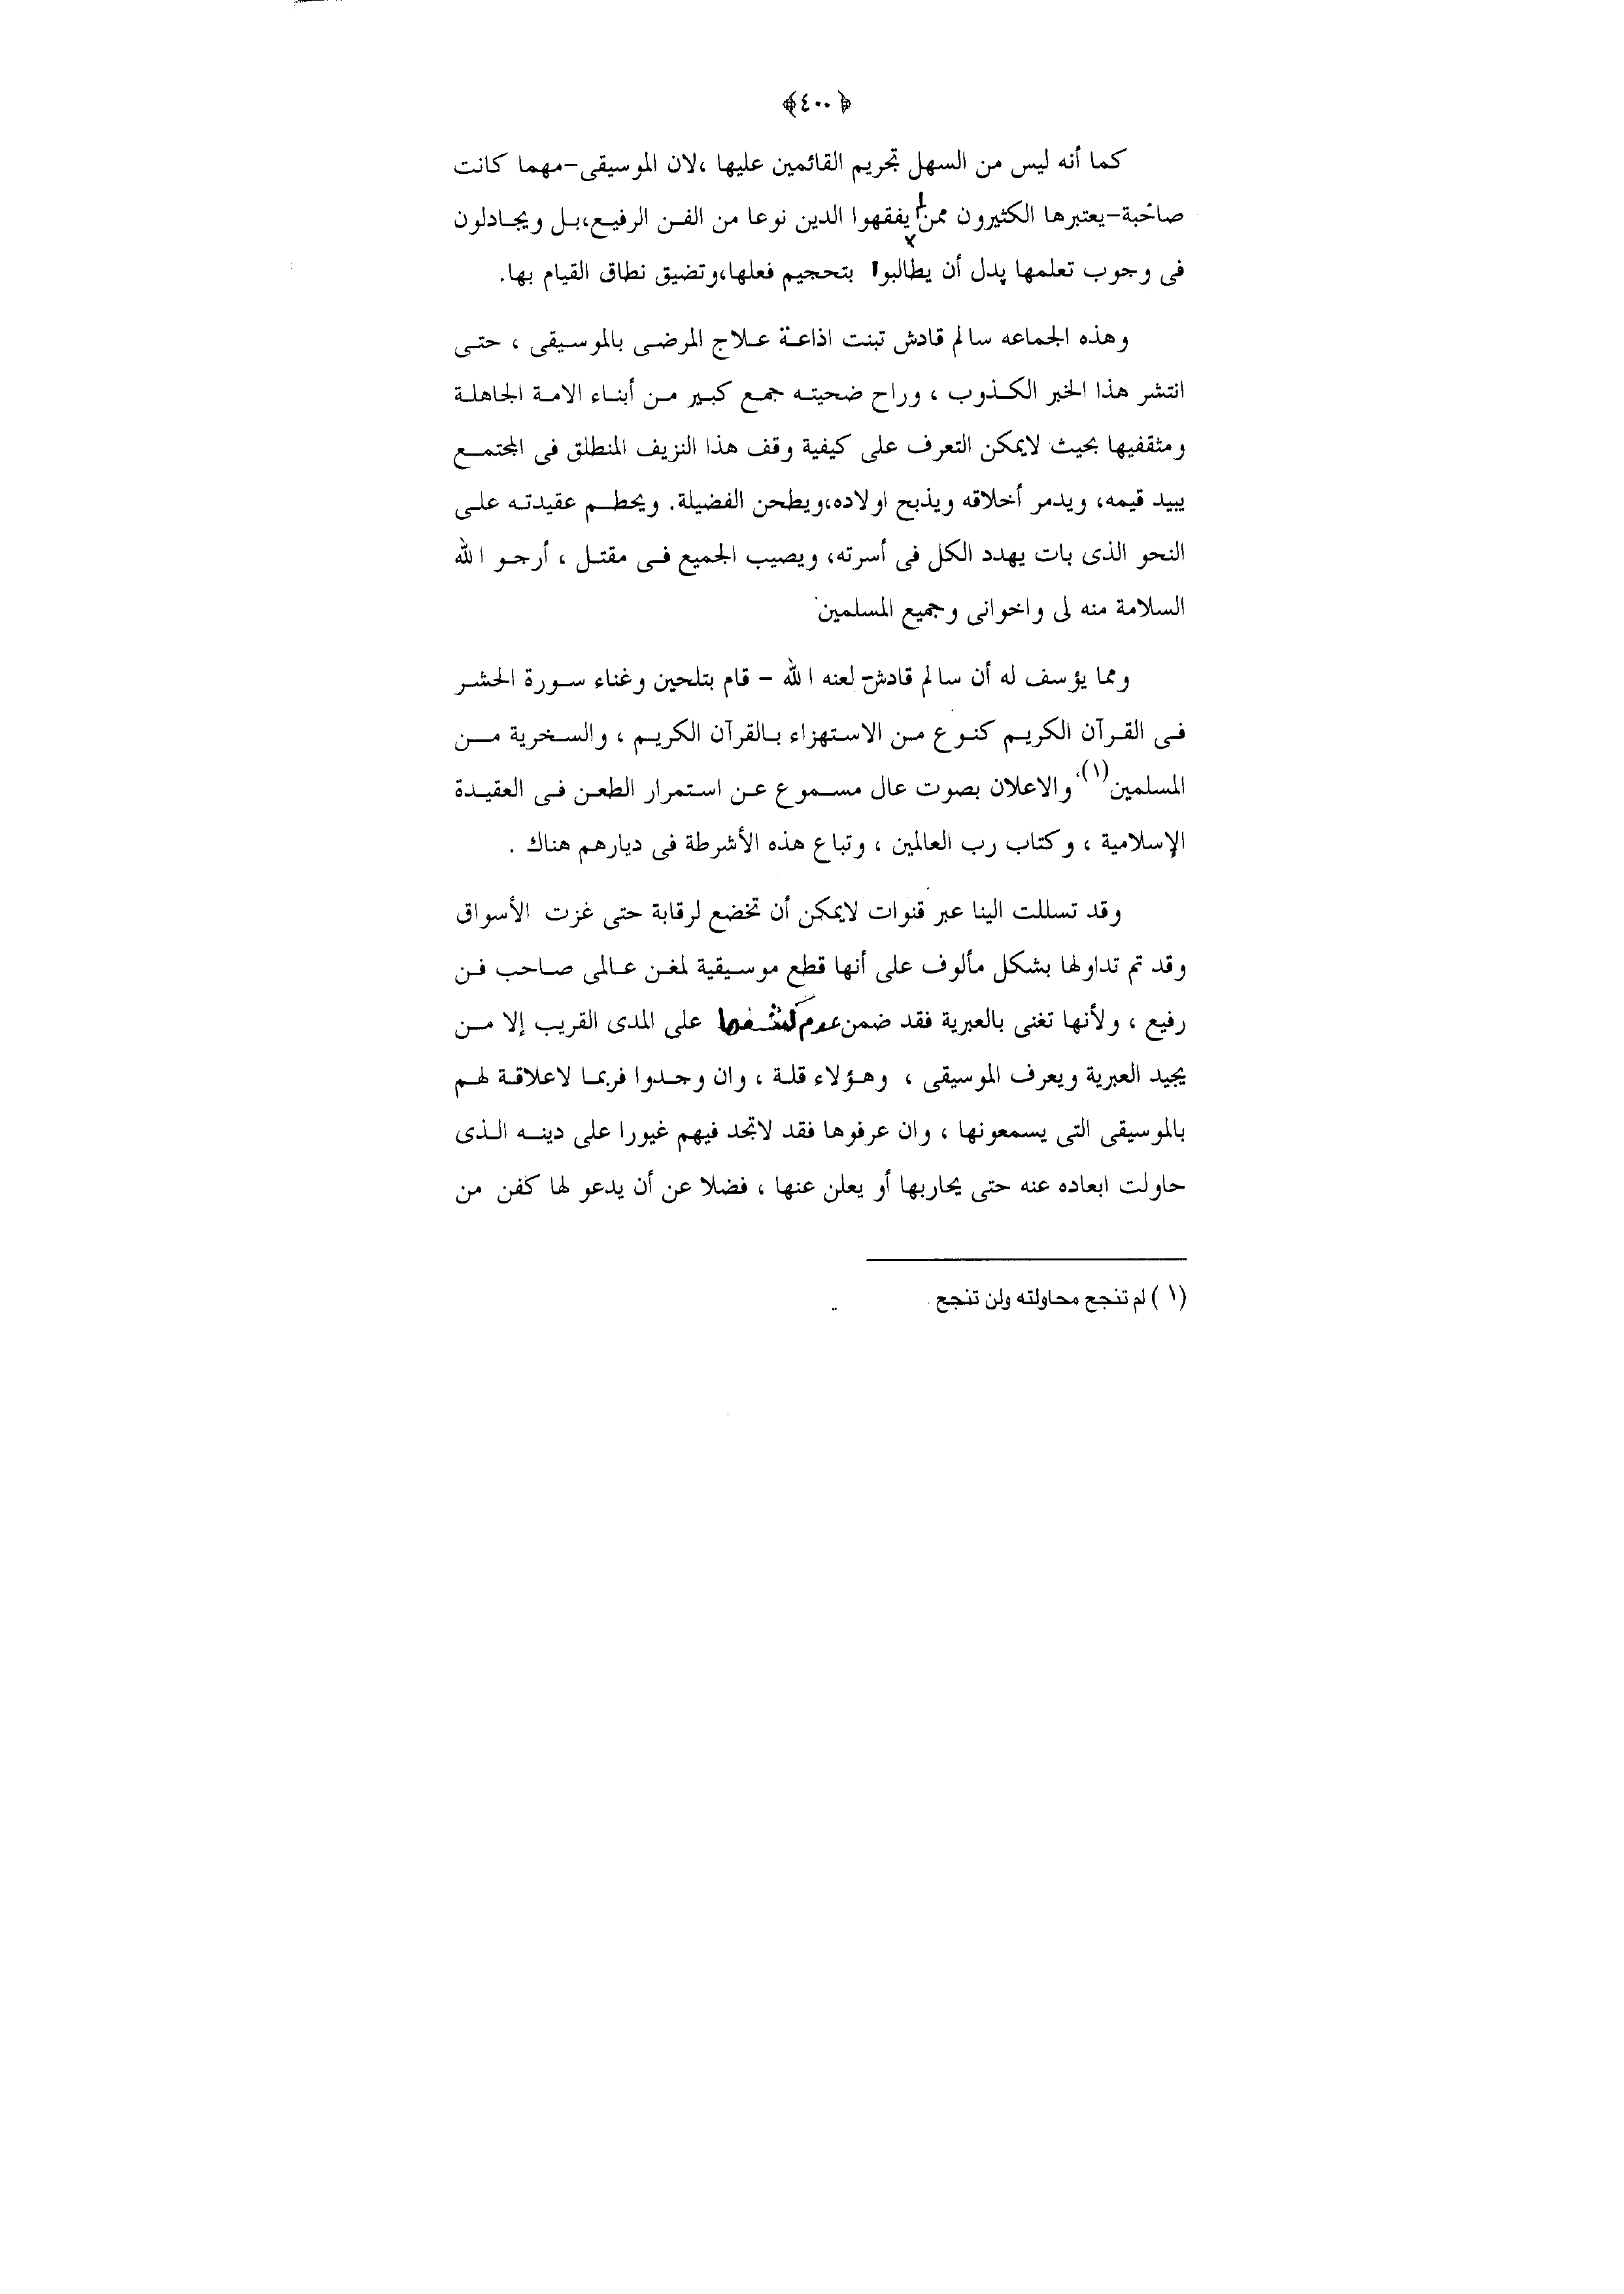 ﴿٤٠٠﴾
كما أنه ليس من السهل تجريم القائمين عليها ،لان الموسيقى-مهما كانت
صاخبة-يعتبرها الكثيرون ممن لم يفقهوا الدين نوعا من الفن الرفيع،بل ويجادلون
فى وجوب تعلمها بدل أن يطالبوا بتحجيم فعلها،وتضيق نطاق القيام بها.
وهذه الجماعه سالم قادش تبنت اذاعة علاج المرضى بالموسيقى ، حتى
انتشر هذا الخبر الكذوب ، وراح ضحيته جمع كبير من أبناء الامة الجاهلة
ومثقفيها بحيث لايمكن التعرف على كيفية وقف هذا النزيف المنطلق فى المجتمع
يبيد قيمه، ويدمر أخلاقه ويذبح اولاده،ويطحن الفضيلة. ويحطم عقيدته على
النحو الذى بات يهدد الكل فى أسرته، ويصيب الجميع فى مقتل ، أرجو الله
السلامة منه لى واخوانى وجميع المسلمين
ومما يؤسف له أن سالم قادش- لعنه الله - قام بتلحين وغناء سورة الحشر
فى القرآن الكريم كنوع من الاستهزاء بالقرآن الكريم ، والسخرية من
المسلمين(١)، والاعلان بصوت عال مسموع عن استمرار الطعن فى العقيدة
الإسلامية ، وكتاب رب العالمين ، وتباع هذه الأشرطة فى ديارهم هناك .
وقد تسللت الينا عبر قنوات لايمكن أن تخضع لرقابة حتى غزت الأسواق
وقد تم تداولها بشكل مألوف على أنها قطع موسيقية لمغن عالمى صاحب فن
رفيع ، ولأنها تغنى بالعبرية فقد ضمن عدم كشفها على المدى القريب إلا من
يجيد العبرية ويعرف الموسيقى ، وهؤلاء قلة ، وان وجدوا فربما لاعلاقة لهم
بالموسيقى التى يسمعونها ، وان عرفوها فقد لاتجد فيهم غيورا على دينه الذى
حاولت ابعاده عنه حتى يحاربها أو يعلن عنها ، فضلا عن أن يدعو لها كفن من
(١) لم تنجح محاولته ولن تنجح